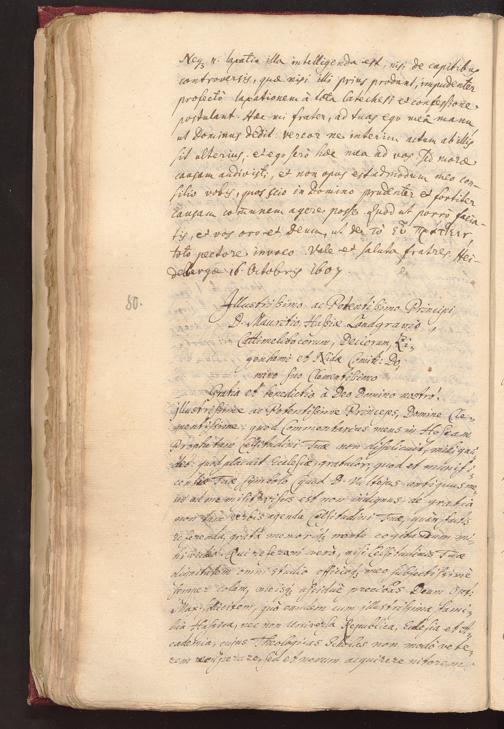 Neq; n. laxatio illa intelligenda est, nisi de capitibus
controversis, quæ nisi illi prius prodant, impudenter
profectò laxationem à tota Catechesi et confessione
postulant. Hæc mi frater, ad tuas ego meâ manu
ut Dominus dedit. vereor ne interim actum ab illis
sit ulterius, et ego serò hæc mea ad vos. Sed moræ
causam audivisti, et non opus est admodum meo con-
silio vobis, quos scio in Domino prudenter et fortiter
causam communem agere posse. Quod ut porro facia-
tis, et vos oro et Deum, ut det τὸ εὖ πράττειν
toto pectore invoco. Vale et saluta fratres. Hei-
delbergæ 16 Octobris 1607
80.
Illustrissimo ac Potentissimo Principi
D. Mauritio, Hassiæ Landgravio,
Cattimelibocorum, Deciorum, Zi-
genhami et Nidæ Comiti: Do-
mino suo Clementissimo
Gratia et benedictio à Deo Domino nostro.
Illustrissime ac Potentissime Princeps, Domine Cle-
mentissime: quod Commentarius meus in Hoseam
Prophetam Celsitudini Tuæ non displicuit,
quod placuit Ecclesiæ, gratulor, quod et
Tuæ symbolo (quod D.
ad me misit) visus est non indignus: de gratia
non verbis agenda Celsitudini Tuæ,
referenda, grata memoria, noctes
Qui referam verò, nisi Celsitudinis Tuæ
dignitatem omni studio officiisq meo subjectissimè
semper colam, assiduè precibus Deum Opt.
Max. sollicitem, quò eandem cum illustrissima fami-
lia Hassiæ, nec non Universa Republica, Ecclesia et A-
cademia, cujus Theologicas Scholas non modò vete-
rem recuperare, sed et novum acquirere nitorem,